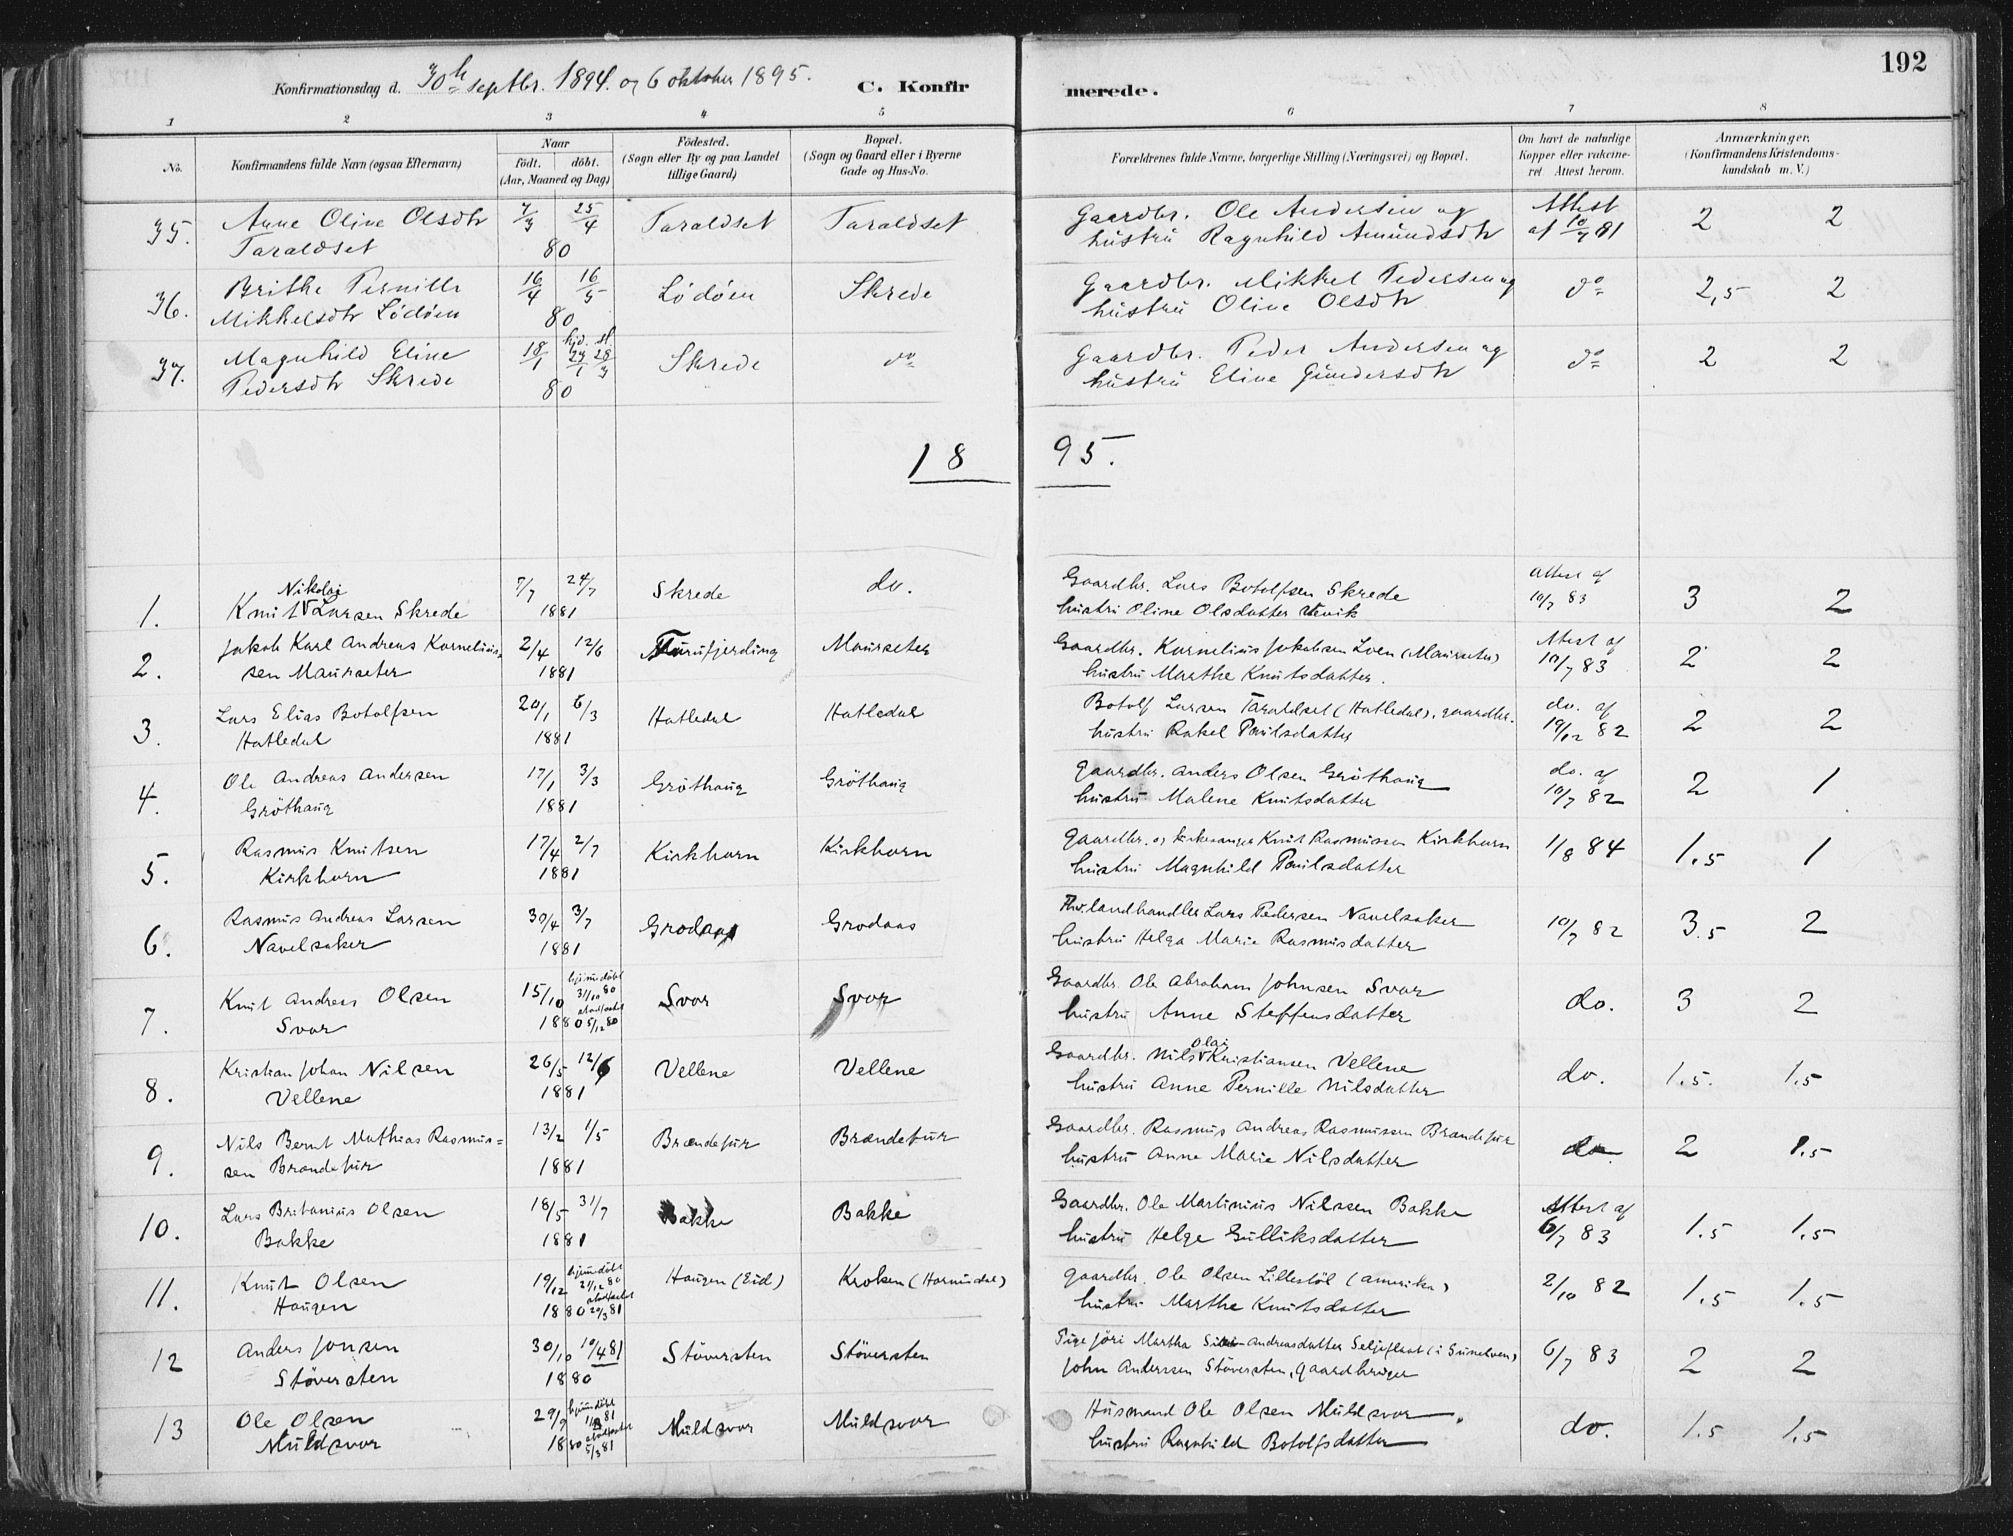 192
Konfirmationsdag d. 30te septbr. 1894. og 6 oktober 1895.
C. Konfirmerede.
1 2 3 4 5 6 7 8
No.
Konfirmandens fulde Navn (ogsaa Efternavn)
Naar
födt. döbt.
(Aar, Maaned og Dag)
Födested.
(Sogn eller By og paa Landet
tillige Gaard)
Bopæl.
(Sogn og Gaard eller i Byerne
Gade og Hus-No.
Forældrenes fulde Navne, borgerlige Stilling (Næringsvei) og Bopæl.
Om havt de naturlige
Kopper eller vakcine-
ret Attest herom.
Anmærkninger.
(Konfirmandens Kristendoms-
kundskab m. V.)
35. Anne Oline Olsdtr 7/3 25/4 Taraldset Taraldset Gaardbr. Ole Andersen og Attest 2 2
Taraldset 80 hustru Ragnhild Amundsdtr af 10/7 81
36. Brithe Pernille 16/4 16/5 Lödöen Skrede Gaardbr. Mikkel Pedersen og do 2,5 2
Mikkelsdtr Lödöen 80 hustru Oline Olsdtr
37. Magnhild Eline 18/1 hjd. 27/1 st. 28/3 Skrede do Gaardbr. Peder Andersen og do 2 2
Pedersdtr Skrede 80 hustru Eline Gundersdtr
1895.
1. Knut Nikolai Larsen Skrede 7/7 24/7 Skrede do. Gaardbr. Lars Botolfsen Skrede Attest af 3 2
1881 hustru Oline Olsdatter 10/7 83
2. Jakob Karl Andreas Kornelius- 2/4 12/6 Maurseter Gaardbr. Kornelius Jakobsen Loen (Maurseter) Attest af 2 2
sen Maurseter 1881 hustru Marthe Knutsdatter. 10/7 83
3. Lars Elias Botolfsen 20/1 6/3 Hatledal Hatledal Botolf Larsen Taraldset (Hatledal), gaardbr. do. af 2 2
Hatledal 1881 hustru Rakel Paulsdatter 19/12 82
4. Ole Andreas Andersen 17/1 3/3 Gröthaug Gröthaug gaardbr. Anders Olsen Gröthaug do. af 2 1
Gröthaug 1881 hustru Malene Knutsdatter 10/7 82
5. Rasmus Knutsen 17/4 2/7 Kirkhorn Kirkhorn gaardbr. og kirkesanger Knut Rasmussen Kirkhorn 1/8 84 1.5 1
Kirkhorn 1881 hustru Magnhild Paulsdatter
6. Rasmus Andreas Larsen 30/4 3/7 Grodaas Grodaas Fhv. landhandler Lars Pedersen Navelsaker 10/7 82 3.5 2
Navelsaker 1881 hustru Helga Marie Rasmusdatter
7. Knut Andreas Olsen 15/10 hjemdöbt 31/10 80 Svor Svor Gaardbr. Ole Abraham Johnsen Svor do. 3 2
Svor 1880 stadfæstet 5/12 80 hustru Anne Steffensdatter
8. Kristian Johan Nilsen 26/5 12/6 Vellene Vellene Gaardbr. Nils Olai Kristiansen Vellene do. 1.5. 1.5
Vellene 1881 hustru Anne Pernille Nilsdatter
9. Nils Bernt Mathias Rasmus- 13/2 1/5 Brændefur Brændefur Gaardbr. Rasmus Andreas Rasmussen Brændefur do. 2 1.5
sen Brændefur 1881 hustru Anne Marie Nilsdatter
10. Lars Britanius Olsen 18/5 31/7 Bakke Bakke Gaardbr. Ole Martinius Nilssen Bakke Attest af 1.5 1.5
Bakke 1881 hustru Helge Gulliksdatter 6/7 83
11. Knut Olsen 19/12 hjemdöbt 21/12 80 Haugen (Eid) Kroken (Hornindal) gaardbr. Ole Olsen Lillestöl (Amerika) 2/10 82 1.5 1.5
Haugen 1880 stadfæstet 20/3 81 hustru Marthe Knutsdatter
12 Anders Jonsen 30/10 10/4 81 Störersten Störersten Pige Jöri Martha Andreasdatter Seljeflaat (i Sunelven) 6/7 83 2 2
Störersten 1880 John Anderssen Störersten, gaardbruger
13 Ole Olsen 29/9 hjemdöbt stadfæstet 5/3 81 Muldsvor Muldsvor Husmand Ole Olsen Muldsvor do. 1.5 1.5
Muldsvor 1880 hustru Ragnhild Botolfsdatter